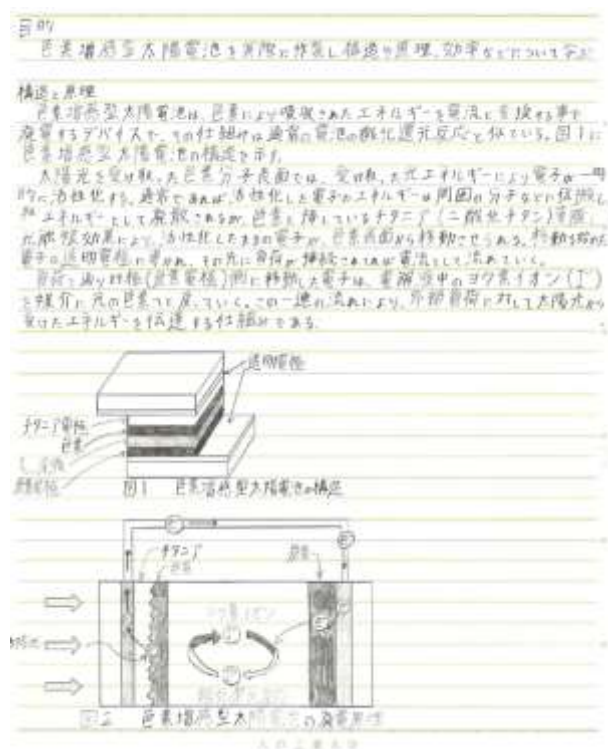 目的
色素増感型太陽電池を実際に作製し構造や原理、効率などについて学ぶ
構造と原理
色素増感型太陽電池は、色素により吸収されたエネルギーを電流に変換する事で
発電するデバイスで、その仕組みは通常の電池の酸化還元反応と似ている。図1に
色素増感型太陽電池の構造を示す。
太陽光を受け取った色素分子表面では、受け取った光エネルギーにより電子が一時
的に活性化する。通常であれば、活性化した電子のエネルギーは周囲の分子などに伝搬し
熱エネルギーとして発散されるが、色素に接しているチタニア(二酸化チタン)
により、活性化したままの電子が、色素表面から移動させられる。移動を始めた
電子は透明電極に導かれ、その先に負荷が接続されてあれば電流として流れていく。
負荷を通り対極側に移動した電子は、電解液中のヨウ素イオン(I⁻)
を媒介に元の色素へと戻っていく。この一連の流れにより、外部負荷に対して太陽光から
受けたエネルギーを伝達する仕組みである。
透明電極
チタニア電極
色素
図1 色素増感型太陽電池の構造
チタニア
色素
ヨウ素イオン
図2 色素増感型太陽電池の発電原理